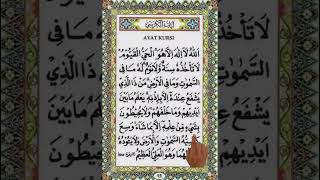 آية الكرسي
AYAT KURSI
اَللّٰهُ لَآ اِلٰهَ اِلَّا هُوَ الْحَيُّ الْقَيُّوْمُ
لَا تَأْخُذُهٗ سِنَةٌ وَّلَا نَوْمٌ لَهٗ مَا فِى
السَّمٰوٰتِ وَمَا فِى الْاَرْضِ مَنْ ذَا الَّذِيْ
يَشْفَعُ عِنْدَهٗٓ اِلَّا بِاِذْنِهٖ يَعْلَمُ مَا بَيْنَ
اَيْدِيْهِمْ وَمَا خَلْفَهُمْ وَلَا يُحِيْطُوْنَ
بِشَيْءٍ مِّنْ عِلْمِهٖٓ اِلَّا بِمَا شَآءَ وَسِعَ
كُرْسِيُّهُ السَّمٰوٰتِ وَالْاَرْضَ وَلَا يَـُٔوْدُهٗ
حِفْظُهُمَا وَهُوَ الْعَلِيُّ الْعَظِيْمُ